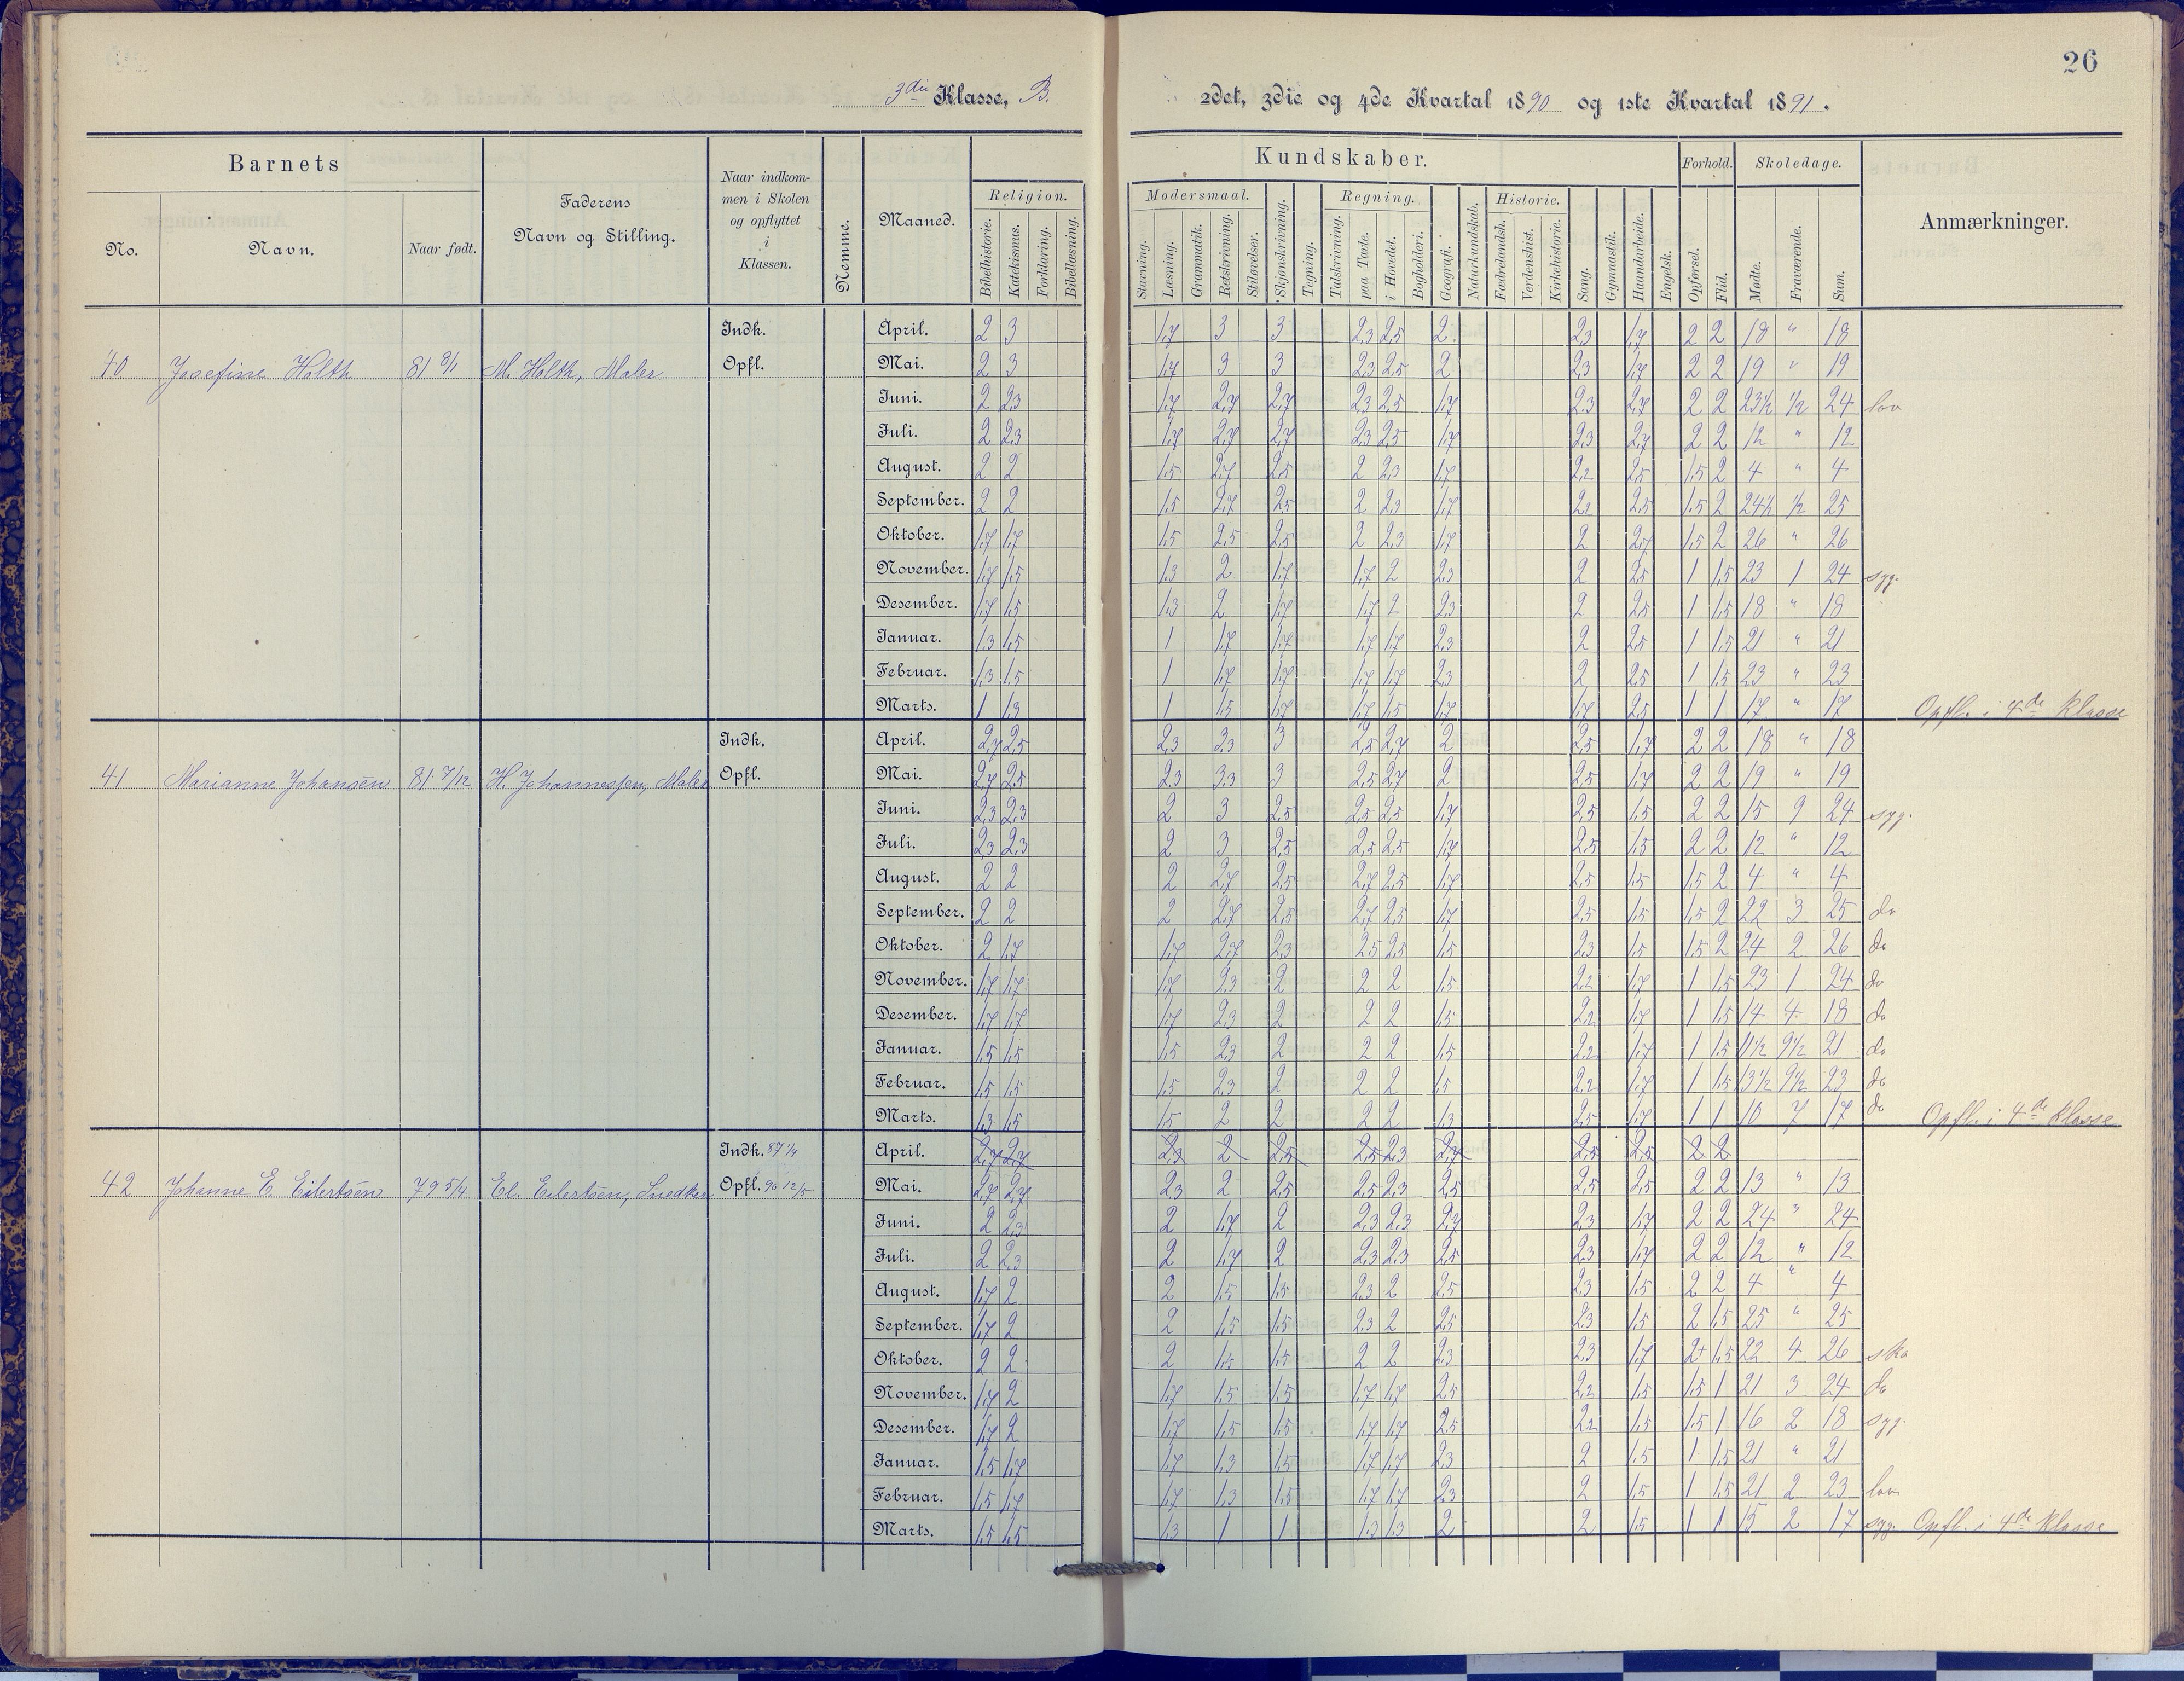 26
3die Klasse, B. 2det, 3die og 4de Kvartal 1890 og 1ste Kvartal 1891.
Barnets
No.
Navn.
Naar født.
Faderens
Navn og Stilling.
Naar indkom-
men i Skolen
og opflyttet
i
Klassen.
Nemme.
Maaned.
Kundskaber.
Religion.
Bibelhistorie.
Katekismus.
Forklaring.
Bibellæsning.
Modersmaal.
Stavning.
Læsning.
Grammatik.
Retskrivning.
Stiløvelser.
Skjønskrivning.
Tegning.
Regning.
Talskrivning.
paa Tavle.
i Hovedet.
Bogholderi.
Geografi.
Naturkundskab.
Historie.
Fædrelandsh.
Verdenshist.
Kirkehistorie.
Sang.
Gymnastik.
Haandarbeide.
Engelsk.
Forhold.
Opførsel.
Flid.
Skoledage.
Mødte.
Fraværende.
Sum.
Anmærkninger.
40 Josefine Holth 81 8/1 M. Holth, Maler
Indk.
Opfl.
April. 2 3 1,7 3 3 2,3 2,5 2 2,3 1,7 2 2 18 " 18
Mai. 2 3 1,7 3 3 2,3 2,5 2 2,3 1,7 2 2 19 " 19
Juni. 2 2,3 1,7 2,7 2,7 2,3 2,5 1,7 2,3 2,7 2 2 23½ ½ 24 lov
Juli. 2 2,3 1,7 2,7 2,7 2,3 2,5 1,7 2,3 2,7 2 2 12 " 12
August. 2 2 1,5 2,7 2,5 2 2,3 1,7 2,2 2,5 1,5 2 4 " 4
September. 2 2 1,5 2,7 2,5 2 2,3 1,7 2,2 2,5 1,5 2 24½ ½ 25
Oktober. 1,7 1,7 1,5 2,5 2,5 2 2,3 1,7 2 2,7 1,5 2 26 " 26
November. 1,7 1,5 1,3 2 1,7 1,7 2 2,3 2 2,5 1 1,5 23 1 24 syg.
Desember. 1,7 1,5 1,3 2 1,7 1,7 2 2,3 2 2,5 1 1,5 18 " 18
Januar. 1,3 1,5 1 1,7 1,7 1,7 1,7 2,3 2 2,5 1 1,5 21 " 21
Februar. 1,3 1,5 1 1,7 1,7 1,7 1,7 2,3 2 2,5 1 1,5 23 " 23
Marts. 1 1,3 1 1,5 1,7 1,7 1,5 1,7 1,7 2,5 1 1 17 " 17 Opfl. i 4de Klasse
41 Marianne Johansen 81 7/12 H. Johannessen, Maler
Indk.
Opfl.
April. 2,7 2,5 2,3 3,3 3 2,5 2,7 2 2,5 1,7 2 2 18 " 18
Mai. 2,7 2,5 2,3 3,3 3 2,5 2,7 2 2,5 1,7 2 2 19 " 19
Juni. 2,3 2,3 2 3 2,5 2,5 2,5 1,7 2,5 1,5 2 2 15 9 24 syg.
Juli. 2,3 2,3 2 3 2,5 2,5 2,5 1,7 2,5 1,5 2 2 12 " 12
August. 2 2 2 2,7 2,5 2,7 2,5 1,7 2,5 1,5 1,5 2 4 " 4
September. 2 2 2 2,7 2,5 2,7 2,5 1,7 2,5 1,5 1,5 2 22 3 25 do
Oktober. 2 1,7 1,7 2,7 2,3 2,5 2,5 1,5 2,3 1,5 1,5 2 24 2 26 do
November. 1,7 1,7 1,7 2,3 2 2 2 1,5 2,2 1,7 1 1,5 23 1 24 do
Desember. 1,7 1,7 1,7 2,3 2 2 2 1,5 2,2 1,7 1 1,5 14 4 18 do
Januar. 1,5 1,5 1,5 2,3 2 2 2 1,5 2,2 1,7 1 1,5 11½ 9½ 21 do
Februar. 1,5 1,5 1,5 2,3 2 2 2 1,5 2,2 1,7 1 1,5 13½ 9½ 23 do
Marts. 1,3 1,5 1,5 2 2 2 2 1,3 2,5 1,7 1 1 10 7 17 do Opfl. i 4de Klasse
42 Johanne E. Eilertsen 79 5/4 El. Eilertsen, Snedker
Indk. 87 1/4
Opfl. 90 12/5
April. 2,7 2,7 2,3 2 2,5 2,5 2,3 2,7 2,5 2,5 2 2
Mai. 2,7 2,7 2,3 2 2,5 2,5 2,3 2,5 2,5 2,5 2 2 13 " 13
Juni. 2 2,3 2 1,7 2 2,3 2,3 2,7 2,3 1,7 2 2 24 " 24
Juli. 2 2,3 2 1,7 2 2,3 2,3 2,5 2,3 1,7 2 2 12 " 12
August. 1,7 2 2 1,5 1,5 2,3 2 2,5 2,3 1,5 2 2 4 " 4
September. 1,7 2 2 1,5 1,5 2,3 2 2,5 2,3 1,5 2 1,5 25 " 25
Oktober. 2 2 2 1,5 1,5 2 2 2,3 2,3 1,7 2+ 1,5 22 4 26 sko
November. 1,7 2 1,7 1,5 1,5 1,7 1,7 2,5 2,2 1,5 1,5 1 21 3 24 do
Desember. 1,7 2 1,7 1,5 1,5 1,7 1,7 2,5 2,2 1,5 1,5 1 16 2 18 syg.
Januar. 1,5 1,7 1,7 1,3 1,5 1,7 1,7 2,3 2 1,5 1 1,5 21 " 21
Februar. 1,5 1,7 1,7 1,3 1,5 1,7 1,7 2,3 2 1,5 1 1,5 21 2 23 lov
Marts. 1,5 1,5 1,3 1 1 1,3 1,3 2 2 1,5 1 1 15 2 17 syg. Opfl. i 4de Klasse